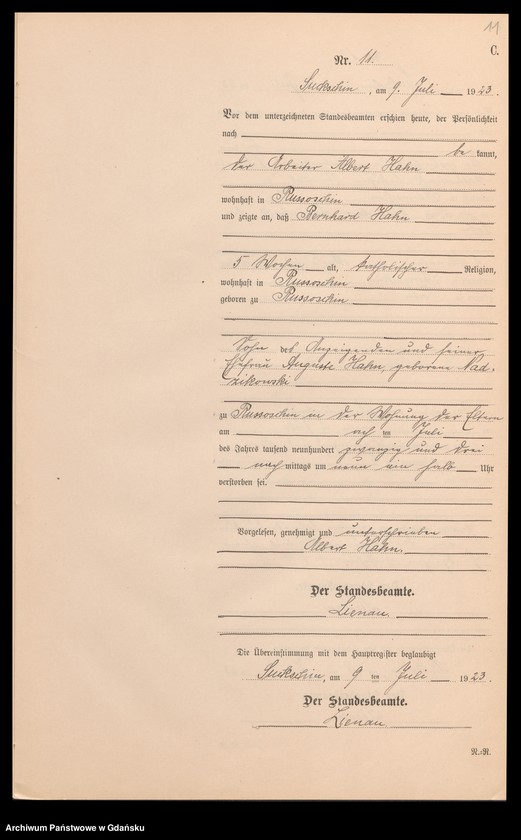 11
C.
Nr. 11.
Suckschin, am 9. Juli 1923.
Vor dem unterzeichneten Standesbeamten erschien heute, der Persönlichkeit
nach
be kannt,
der Arbeiter Albert Hahn
wohnhaft in Russoschin
und zeigte an, daß Bernhard Hahn
5 Wochen alt, katholischer Religion,
wohnhaft in Russoschin
geboren zu Russoschin
Sohn des Anzeigenden und seiner
Ehefrau Auguste Hahn, geborene Nad-
zikowski
zu Russoschin in der Wohnung der Eltern
am ach ten Juli
des Jahres tausend neunhundert zwanzig und drei
nach mittags um neun ein halb Uhr
verstorben sei.
Vorgelesen, genehmigt und unterschrieben
Albert Hahn.
Der Standesbeamte.
Lienau
Die Übereinstimmung mit dem Hauptregister beglaubigt
Suckschin, am 9 ten Juli 1923.
Der Standesbeamte.
Lienau.
N.-R.
Archiwum Państwowe w Gdańsku